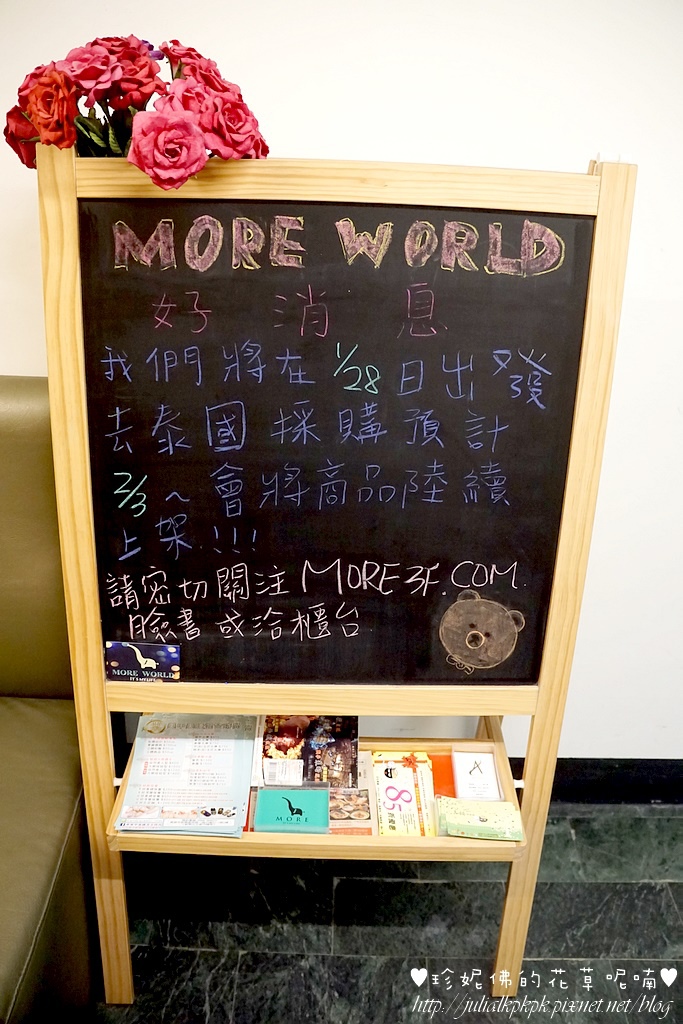 MORE WORLD
好消息
我們將在1/28日出發
去泰國採購預計
2/3~會將商品陸續
上架!!!
請密切關注MORE3F.COM.
臉書或洽櫃台
MORE WORLD
MORE
85
A
♥珍妮佛的花草呢喃♥
http://julialkpkpk.pixnet.net/blog